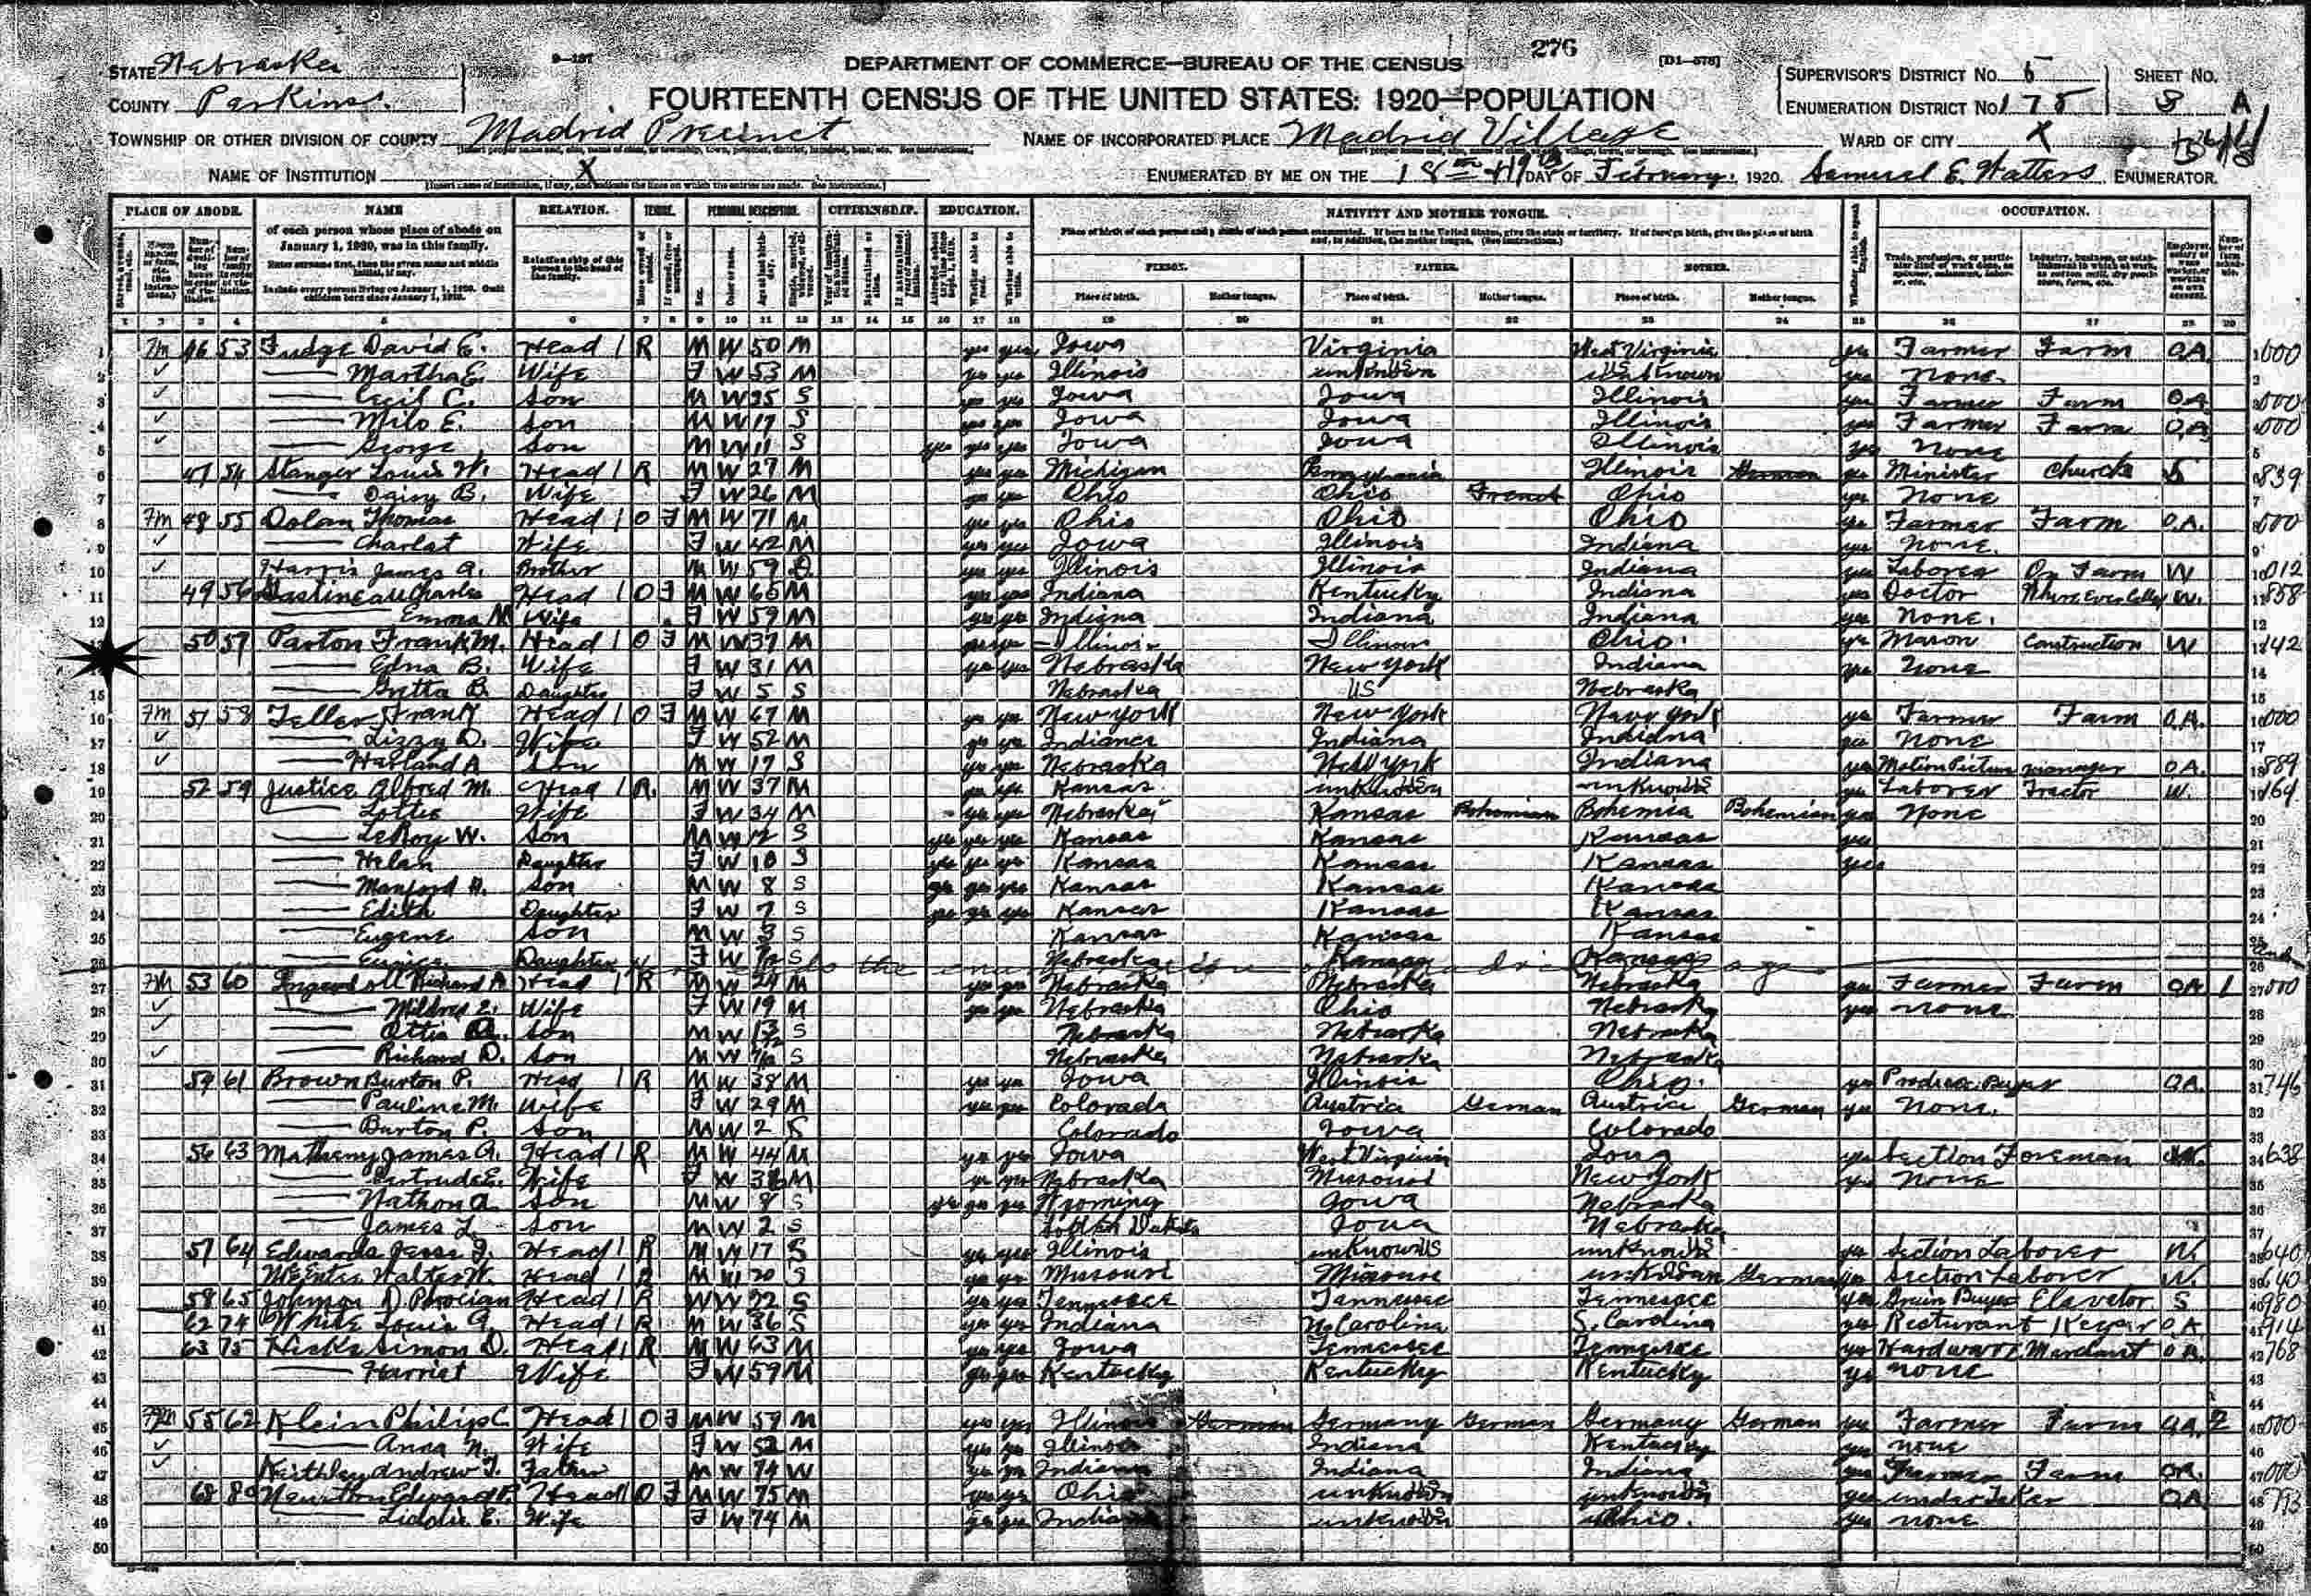 276
9-137
[D1-578]
DEPARTMENT OF COMMERCE—BUREAU OF THE CENSUS
FOURTEENTH CENSUS OF THE UNITED STATES: 1920—POPULATION
STATE Nebraska
COUNTY Perkins.
SUPERVISOR'S DISTRICT No. 5
ENUMERATION DISTRICT No. 175
SHEET No. 8 A
TOWNSHIP OR OTHER DIVISION OF COUNTY Madrid Precinct
NAME OF INCORPORATED PLACE Madrid Village
WARD OF CITY X
NAME OF INSTITUTION X
ENUMERATED BY ME ON THE 18th + 19th DAY OF February, 1920. Samuel E. Watters ENUMERATOR.
PLACE OF ABODE. NAME RELATION. TENURE. PERSONAL DESCRIPTION. CITIZENSHIP. EDUCATION. NATIVITY AND MOTHER TONGUE. OCCUPATION.
of each person whose place of abode on January 1, 1920, was in this family.
Enter surname first, then the given name and middle initial, if any.
Include every person living on January 1, 1920. Omit children born since January 1, 1920.
Relationship of this person to the head of the family.
PERSON. FATHER. MOTHER.
Place of birth. Mother tongue. Place of birth. Mother tongue. Place of birth. Mother tongue.
1 2 3 4 5 6 7 8 9 10 11 12 13 14 15 16 17 18 19 20 21 22 23 24 25 26 27 28 29
1 Fm 46 53 Fudge David E. Head 1 R M W 50 M yes yes Iowa Virginia West Virginia yes Farmer Farm O.A. 000
2 Martha E. Wife F W 53 M yes yes Illinois unknown US unknown US yes None
3 Cecil C. Son M W 25 S yes yes Iowa Iowa Illinois yes Farmer Farm O.A. 000
4 Milo E. Son M W 17 S yes yes Iowa Iowa Illinois yes Farmer Farm O.A. 000
5 George Son M W 11 S yes yes yes Iowa Iowa Illinois yes None
6 47 54 Stanger Louis W. Head 1 R M W 27 M yes yes Michigan Pennsylvania Illinois German yes Minister Church 839
7 Daisy B. Wife F W 26 M yes yes Ohio Ohio French Ohio yes None
8 Fm 48 55 Dolan Thomas Head 1 O F M W 71 M yes yes Ohio Ohio Ohio yes Farmer Farm O.A. 000
9 Charlat Wife F W 42 M yes yes Iowa Illinois Indiana yes None.
10 Harris James A. Brother M W 59 D yes yes Illinois Illinois Indiana yes Laborer On Farm W 012
11 49 56 Gastineau Charles Head 1 O F M W 66 M yes yes Indiana Kentucky Indiana yes Doctor W. 858
12 Emma M Wife F W 59 M yes yes Indiana Indiana Indiana yes None.
13 50 57 Paxton Frank M. Head 1 O F M W 37 M yes yes Illinois Illinois Ohio. yes Mason Construction W 142
14 Edna B. Wife F W 31 M yes yes Nebraska New York Indiana yes None
15 Gretta B. Daughter F W 5 S Nebraska US Nebraska
16 Fm 51 58 Teller Frank Head 1 O F M W 67 M yes yes New York New York New York yes Farmer Farm O.A. 000
17 Lizzy D. Wife F W 52 M yes yes Indiana Indiana Indiana yes None
18 Harland A Son M W 17 S yes yes Nebraska New York Indiana yes Motion Picture manager O.A. 889
19 52 59 Justice Alfred M. Head 1 R. M W 37 M yes yes Kansas unknown US unknown US yes Laborer Tractor W. 169
20 Lottie Wife F W 34 M yes yes Nebraska Kansas Bohemian Bohemia Bohemian yes None
21 LeRoy W. Son M W 12 S yes yes yes Kansas Kansas Kansas yes
22 Helan Daughter F W 10 S yes yes yes Kansas Kansas Kansas yes
23 Manford H. Son M W 8 S yes yes yes Kansas Kansas Kansas
24 Edith Daughter F W 7 S yes yes yes Kansas Kansas Kansas
25 Eugene Son M W 3 S Kansas Kansas Kansas
26 Eunice Daughter F W S Nebraska Kansas Kansas
27 Fm 53 60 Ingersoll Richard A Head 1 R M W 24 M yes yes Nebraska Nebraska Nebraska yes Farmer Farm OA 1 000
28 Mildred E. Wife F W 19 M yes yes Nebraska Ohio Nebraska yes none
29 Ottis Son M W S Nebraska Nebraska Nebraska
30 Richard D. Son M W S Nebraska Nebraska Nebraska
31 54 61 Brown Burton P. Head 1 R M W 38 M yes yes Iowa Illinois Ohio. yes Produce Buyer O.A. 746
32 Pauline M. Wife F W 29 M yes yes Colorado Austria German Austria German yes None.
33 Burton P. Son M W 2 S Colorado Iowa Colorado
34 56 63 Matheny James A. Head 1 R M W 44 M yes yes Iowa West Virginia Iowa yes Section Foreman W. 638
35 Gertrude E. Wife F W M yes yes Nebraska Missouri New York yes None
36 Nathan A. Son M W 8 S yes yes yes Wyoming Iowa Nebraska
37 James L. Son M W 2 S South Dakota Iowa Nebraska
38 57 64 Edwards Jesse J. Head 1 R M W 17 S yes yes Illinois unknown US unknown US yes Section Laborer W. 640
39 McEntee Walter W. Head 1 R M W 20 S yes yes Missouri Missouri unknown German yes Section Laborer W. 640
40 58 65 Johnson D. Phocian Head 1 R M W 22 S yes yes Tennessee Tennessee Tennessee yes Grain Buyer Elavator S 980
41 62 74 White Louis A. Head 1 R M W 36 S yes yes Indiana N. Carolina S. Carolina yes Resturant Keeper O.A. 914
42 63 75 Hicks Simon D. Head 1 R M W 63 M yes yes Iowa Tennessee Tennessee yes Hardware Merchant O.A. 768
43 Harriet Wife F W 59 M yes yes Kentucky Kentucky Kentucky yes none
44
45 Fm 55 62 Klein Philip C. Head 1 O F M W 59 M yes yes Illinois German Germany German Germany German yes Farmer Farm O.A. 2 000
46 Anna N. Wife F W 52 M yes yes Illinois Indiana Kentucky yes none
47 Keithley Andrew J. Father M W 74 W yes yes Indiana Indiana Indiana yes Farmer Farm O.A. 000
48 68 80 Newton Edward P. Head 1 O F M W 75 M yes yes Ohio unknown US unknown US yes undertaker O.A. 793
49 Liddie E. Wife F W 74 M yes yes Indiana unknown US Ohio. yes none
50